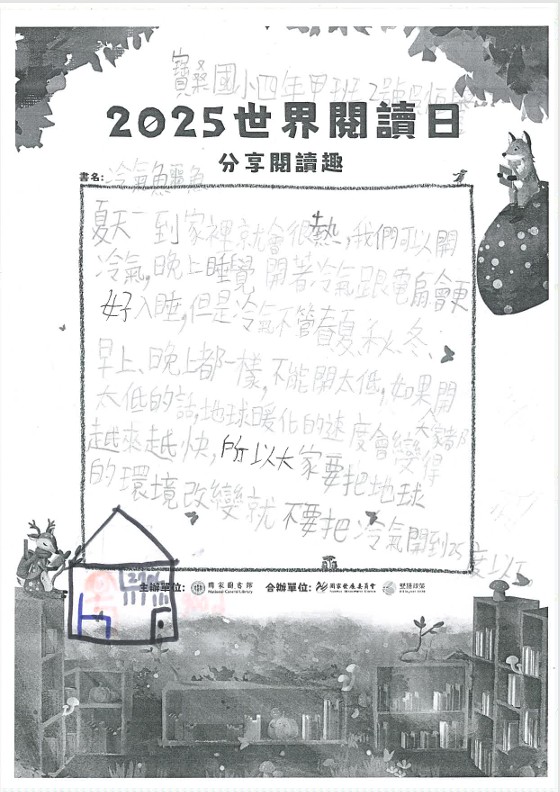 寶桑國小四年甲班2號
2025世界閱讀日
分享閱讀趣
書名:冷氣鱷魚
夏天一到家裡就會很熱,我們可以開
冷氣,晚上睡覺開著冷氣跟電扇會更
好入睡,但是冷氣不管春、夏、秋、冬、
早上、晚上都一樣,不能開太低,如果開
太低的話,地球暖化的速度會變得
越來越快,所以大家要把地球
大家都
的環境改變就不要把冷氣開到25
度以下
主辦單位: 國家圖書館 合辦單位: 國家發展委員會